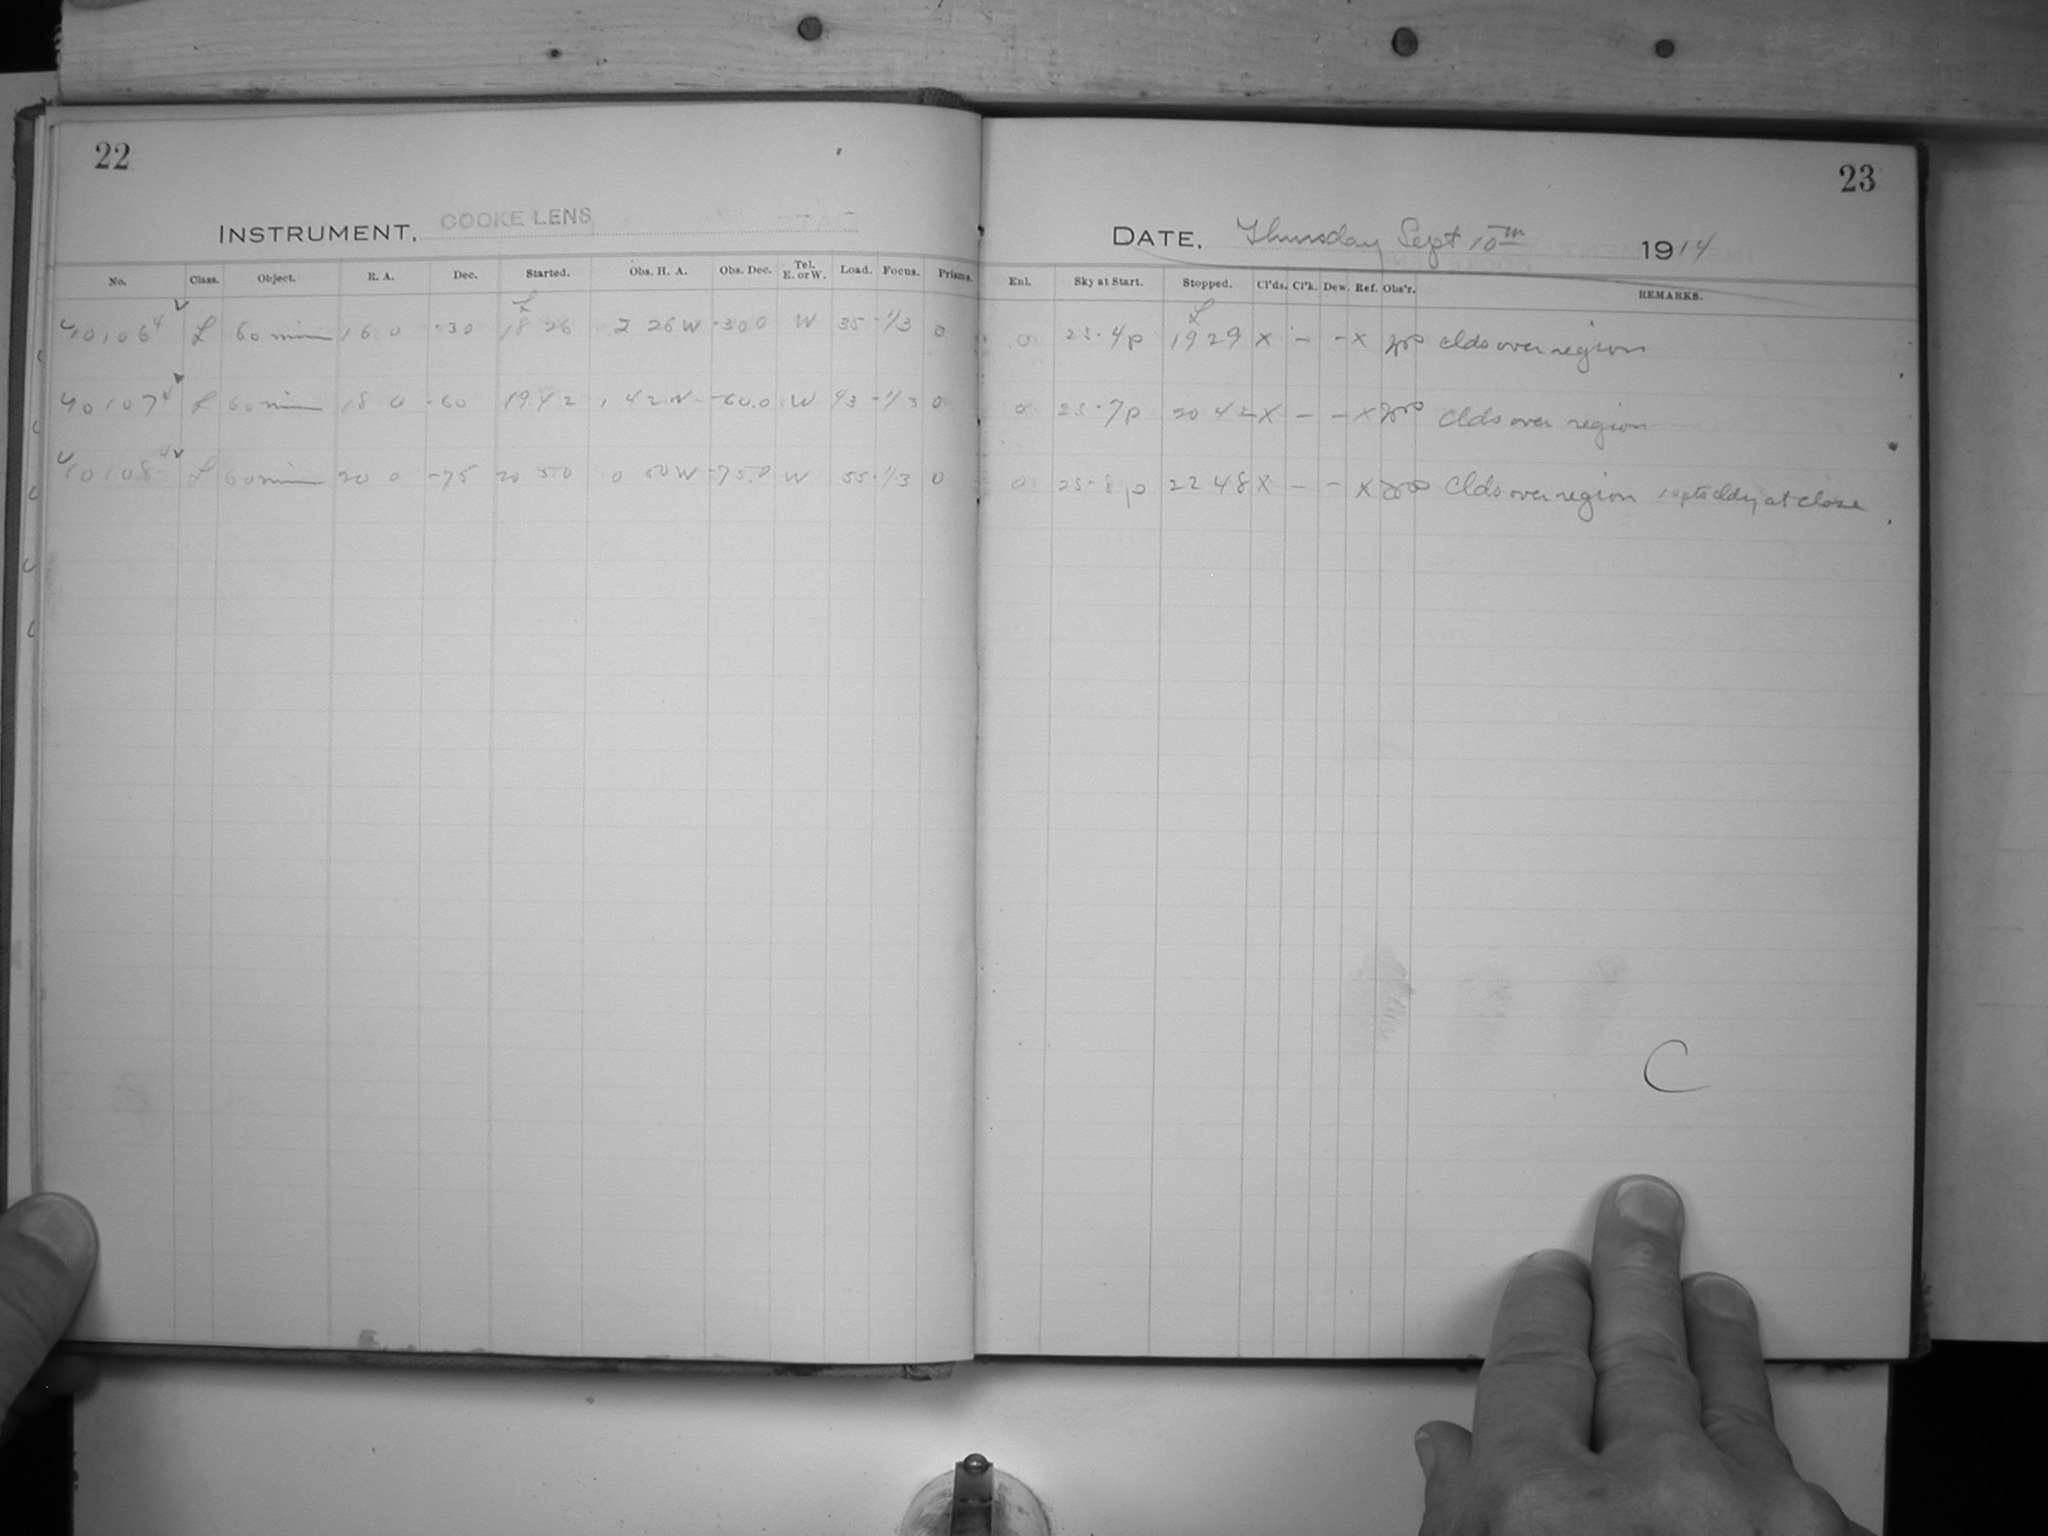 22
INSTRUMENT, COOKE LENS
No. Class. Object. R. A. Dec. Started. Obs. H. A. Obs. Dec. Tel. E. or W. Load. Focus. Prisms.
10106 L 60 min 16 0 -30 18 26 2 26 W -30.0 W 35 -1/3 0
10107 L 60 min 18 0 -60 19 42 1 42 W -60.0 W 43 -1/3 0
10108 L 60 min 20 0 -75 20 50 0 50 W -75.0 W 55 -1/3 0
23
DATE, Thursday Sept 10th 1914
Enl. Sky at Start. Stopped. Cl'ds. Cl'k. Dew. Ref. Obs'r. REMARKS.
0 25.4p 19 29 X - - X Clds over region
0 25.7p 20 42 X - - X Clds over region
0 25.8p 22 48 X - - X Clds over region cldy at close
C